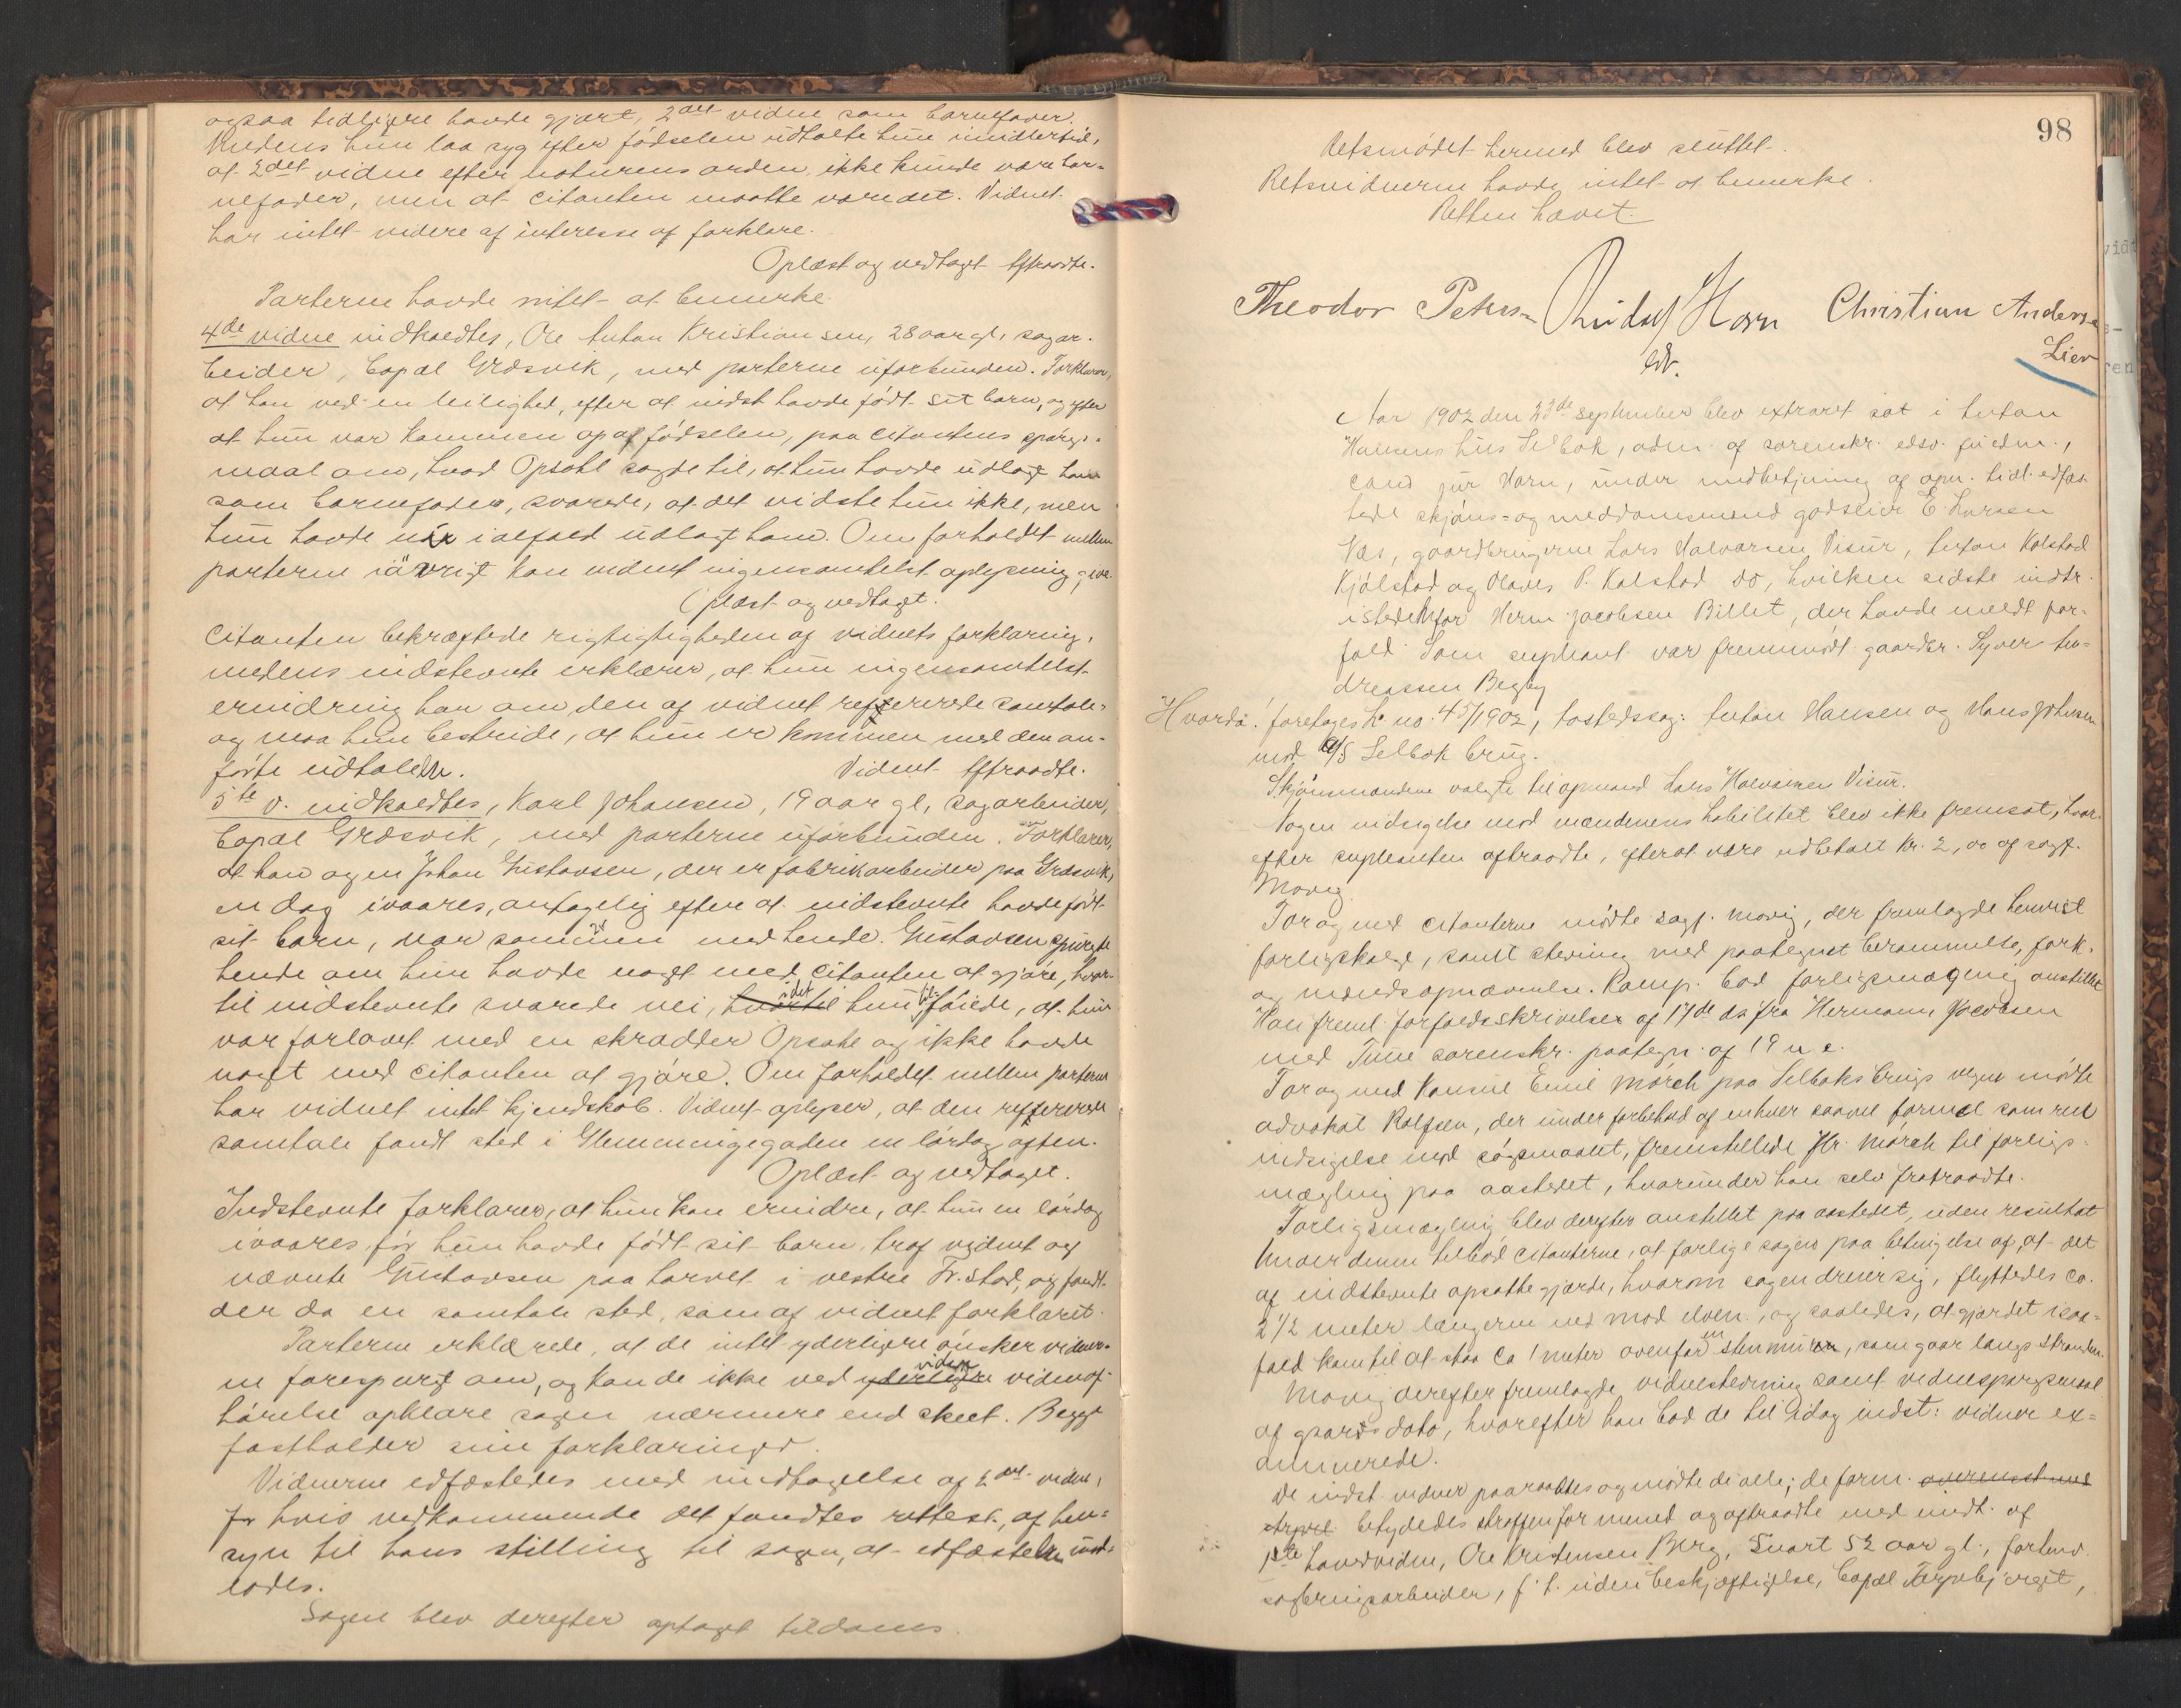 ogsaa tidligere havde gjort, 2det vidne som barnefader.
Medens hun laa syg efter fødselen udtalte hun imidlertid,
at 2det vidne efter naturens orden ikke kunde være bar-
nefader, men at citanten maatte være det. Vidnet
har intet videre af interesse at forklare.
Oplæst og vedtaget. Aftraadte.
Parterne havde intet at bemerke.
4de vidne indkaldtes, Ole Anton Kristiansen, 28 aar gl, sagar-
beider, bopæl Græsvik, med parterne uforbunden. Forklarer,
at han ved en leilighed, efter at indst havde født sit barn, og efter
at hun var kommen op af fødselen, paa citantens spørgs-
maal om, hvad Opsahl sagde til, at hun havde udlagt ham
som barnefader, svarede, at det vidste hun ikke, men
hun havde nu ialfald udlagt ham. Om forholdet mellem
parterne iøvrigt kan vidnet ingensomhelst oplysning give.
Oplæst og vedtaget.
Citanten bekræftede rigtigtigheden af vidnets forklaring,
medens indstevnte erklærer, at hun ingensomhelst
erindring har om den af vidnet refererede samtale
og maa hun bestride, at hun er kommen med den an-
førte udtalelse. Vidnet aftraadte.
5te v. indkaldtes, Karl Johansen, 19 aar gl, sagarbeider,
bopæl Græsvik, med parterne uforbunden. Forklarer,
at han og en Johan Gustavsen, der er fabrikarbeider paa Græsvik,
en dag ivaares, antagelig efter at indstevnte havde født
sit barn, var sammen med hende. Gustavsen spurgte
hende om hun havde noget med citanten at gjøre, hvor-
til indstevnte svarede nei, hvortil idet hun tilføiede, at hun
var forlovet med en skrædder Opsahl og ikke havde
noget med citanten at gjøre. Om forholdet mellem parterne
har vidnet intet kjendskab. Vidnet oplyser, at den refererede
samtale fandt sted i Glemmingegaden en lørdag aften.
Oplæst og vedtaget.
Indstevnte forklarer, at hun kan erindre, at hun en lørdag
ivaares før hun havde født sit barn, traf vidnet og
nævnte Gustavsen paa torvet i vestre Fr.stad, og fandt
der da en samtale sted, som af vidnet forklaret.
Parterne erklærede, at de intet yderligere ønsker vidner-
ne forespurgt om, og kande ikke ved yderligere viden vidneaf-
hørelse opklare sagen nærmere end skeet. Begge
fastholder sine forklaringer.
Vidnerne edfæstedes med undtagelse af 2det vidne,
for hvis vedkommende det fandtes rettest, af hen-
syn til hans stilling til sagen, at edfæstelse und-
lodes.
Sagen blev derefter optaget til doms.
98
Retsmødet hermed blev sluttet.
Retsvidnerne havde intet at bemerke.
Retten hævet.
Theodor Peters— Rudolf Horn Christian Anderse
Lien
edv.
Aar 1902 den 23de september blev extraret sat i Anton
Hansens hus Selbak, adm. af sorenskr. edsv. fuldm.,
cand jur Horn, under medbetjening af opn. tidl. edfæs-
tede skjøns- og meddomsmænd godseier E. Larsen
Næs, gaardbrugerne Lars Halvorsen Visur, Anton Kolstad
Kjølstad og Olaves P. Kolstad do, hvilken sidste indtr.
istedenfor Herm. Jacobsen Billet, der havde meldt for-
fald. Som supleant var fremmødt gaardbr. Syver An-
dreassen Begby
Hvorda: foretoges L. no. 45/1902, aastedssag: Anton Hansen og Hans Johnsen
mod A/S Selbak brug.
Skjønsmændene valgte til opmand Lars Halvorsen Visur.
Nogen indsigelse mod mændenens habilitet blev ikke fremsat, hvor-
efter supleanten aftraadte, efter at være udbetalt Kr. 2,00 af sagf.
Movig.
For og med citanterne mødte sagf. Movig, der fremlagde henvist
forligsklage, samt stevning med paategnet berammelse, fork.
og mændsopnævnelse. Komp. bad forligsmægling anstillet
Han freml. forfaldsskrivelse af 17de ds fra Hermann Jacobsen
med Tune sorenskr. paategn. af 19 n. e.
For og med konsul Emil Mørch paa Selbaks brugs vegne mødte
advokat Rolfsen, der under forbehold af enhver saavel formel som reel
indsigelse mod søgsmaalet, fremstillede Hr. Mørch til forligs-
mægling paa aastedet, hvorunder han selv fratraadte.
Forligsmægling blev derefter anstillet paa aastedet, uden resultat
Under denne tilbød citanterne, at forlige sagen paa betingelse af, at det
af indstevnte opsatte gjærde, hvorom sagen dreier sig, flyttedes ca.
2 1/2 meter længere ned mod elven, og saaledes, at gjærdet isaa-
fald kom til at staa ca 1 meter ovenfor en stenmur, som gaar langs stranden.
Movig derefter fremlagde vidnestevning samt vidnespørgsmaal
af gaars dato, hvorefter han bad de til idag indst: vidner ex-
aminerede.
De indst. vidner paaraabtes og mødte de alle; de form. overensst med
betydedes straffen for mened og aftraadte med undt. af
1ste hovedvidne, Ole Kristensen Berg, snart 52 aar gl., forhenv.
sagbrugsarbeider, f. t. uden beskjæftigelse, bopæl Torpebjerget,